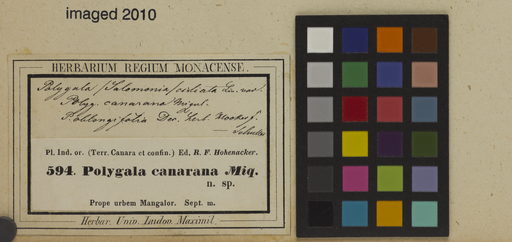 imaged 2010
HERBARIUM REGIUM MONACENSE.
Polygala / Salomonia / ciliata Lin. var.
Polyg. canarana Miqul.
P. oblongifolia Dec. Herb. Hookerf.
Pl. Ind. or. (Terr. Canara et confin.) Ed. R. F. Hohenacker.
594. Polygala canarana Miq.
n. sp.
Prope urbem Mangalor. Sept. m.
Herbar. Univ. Ludov. Maximil.